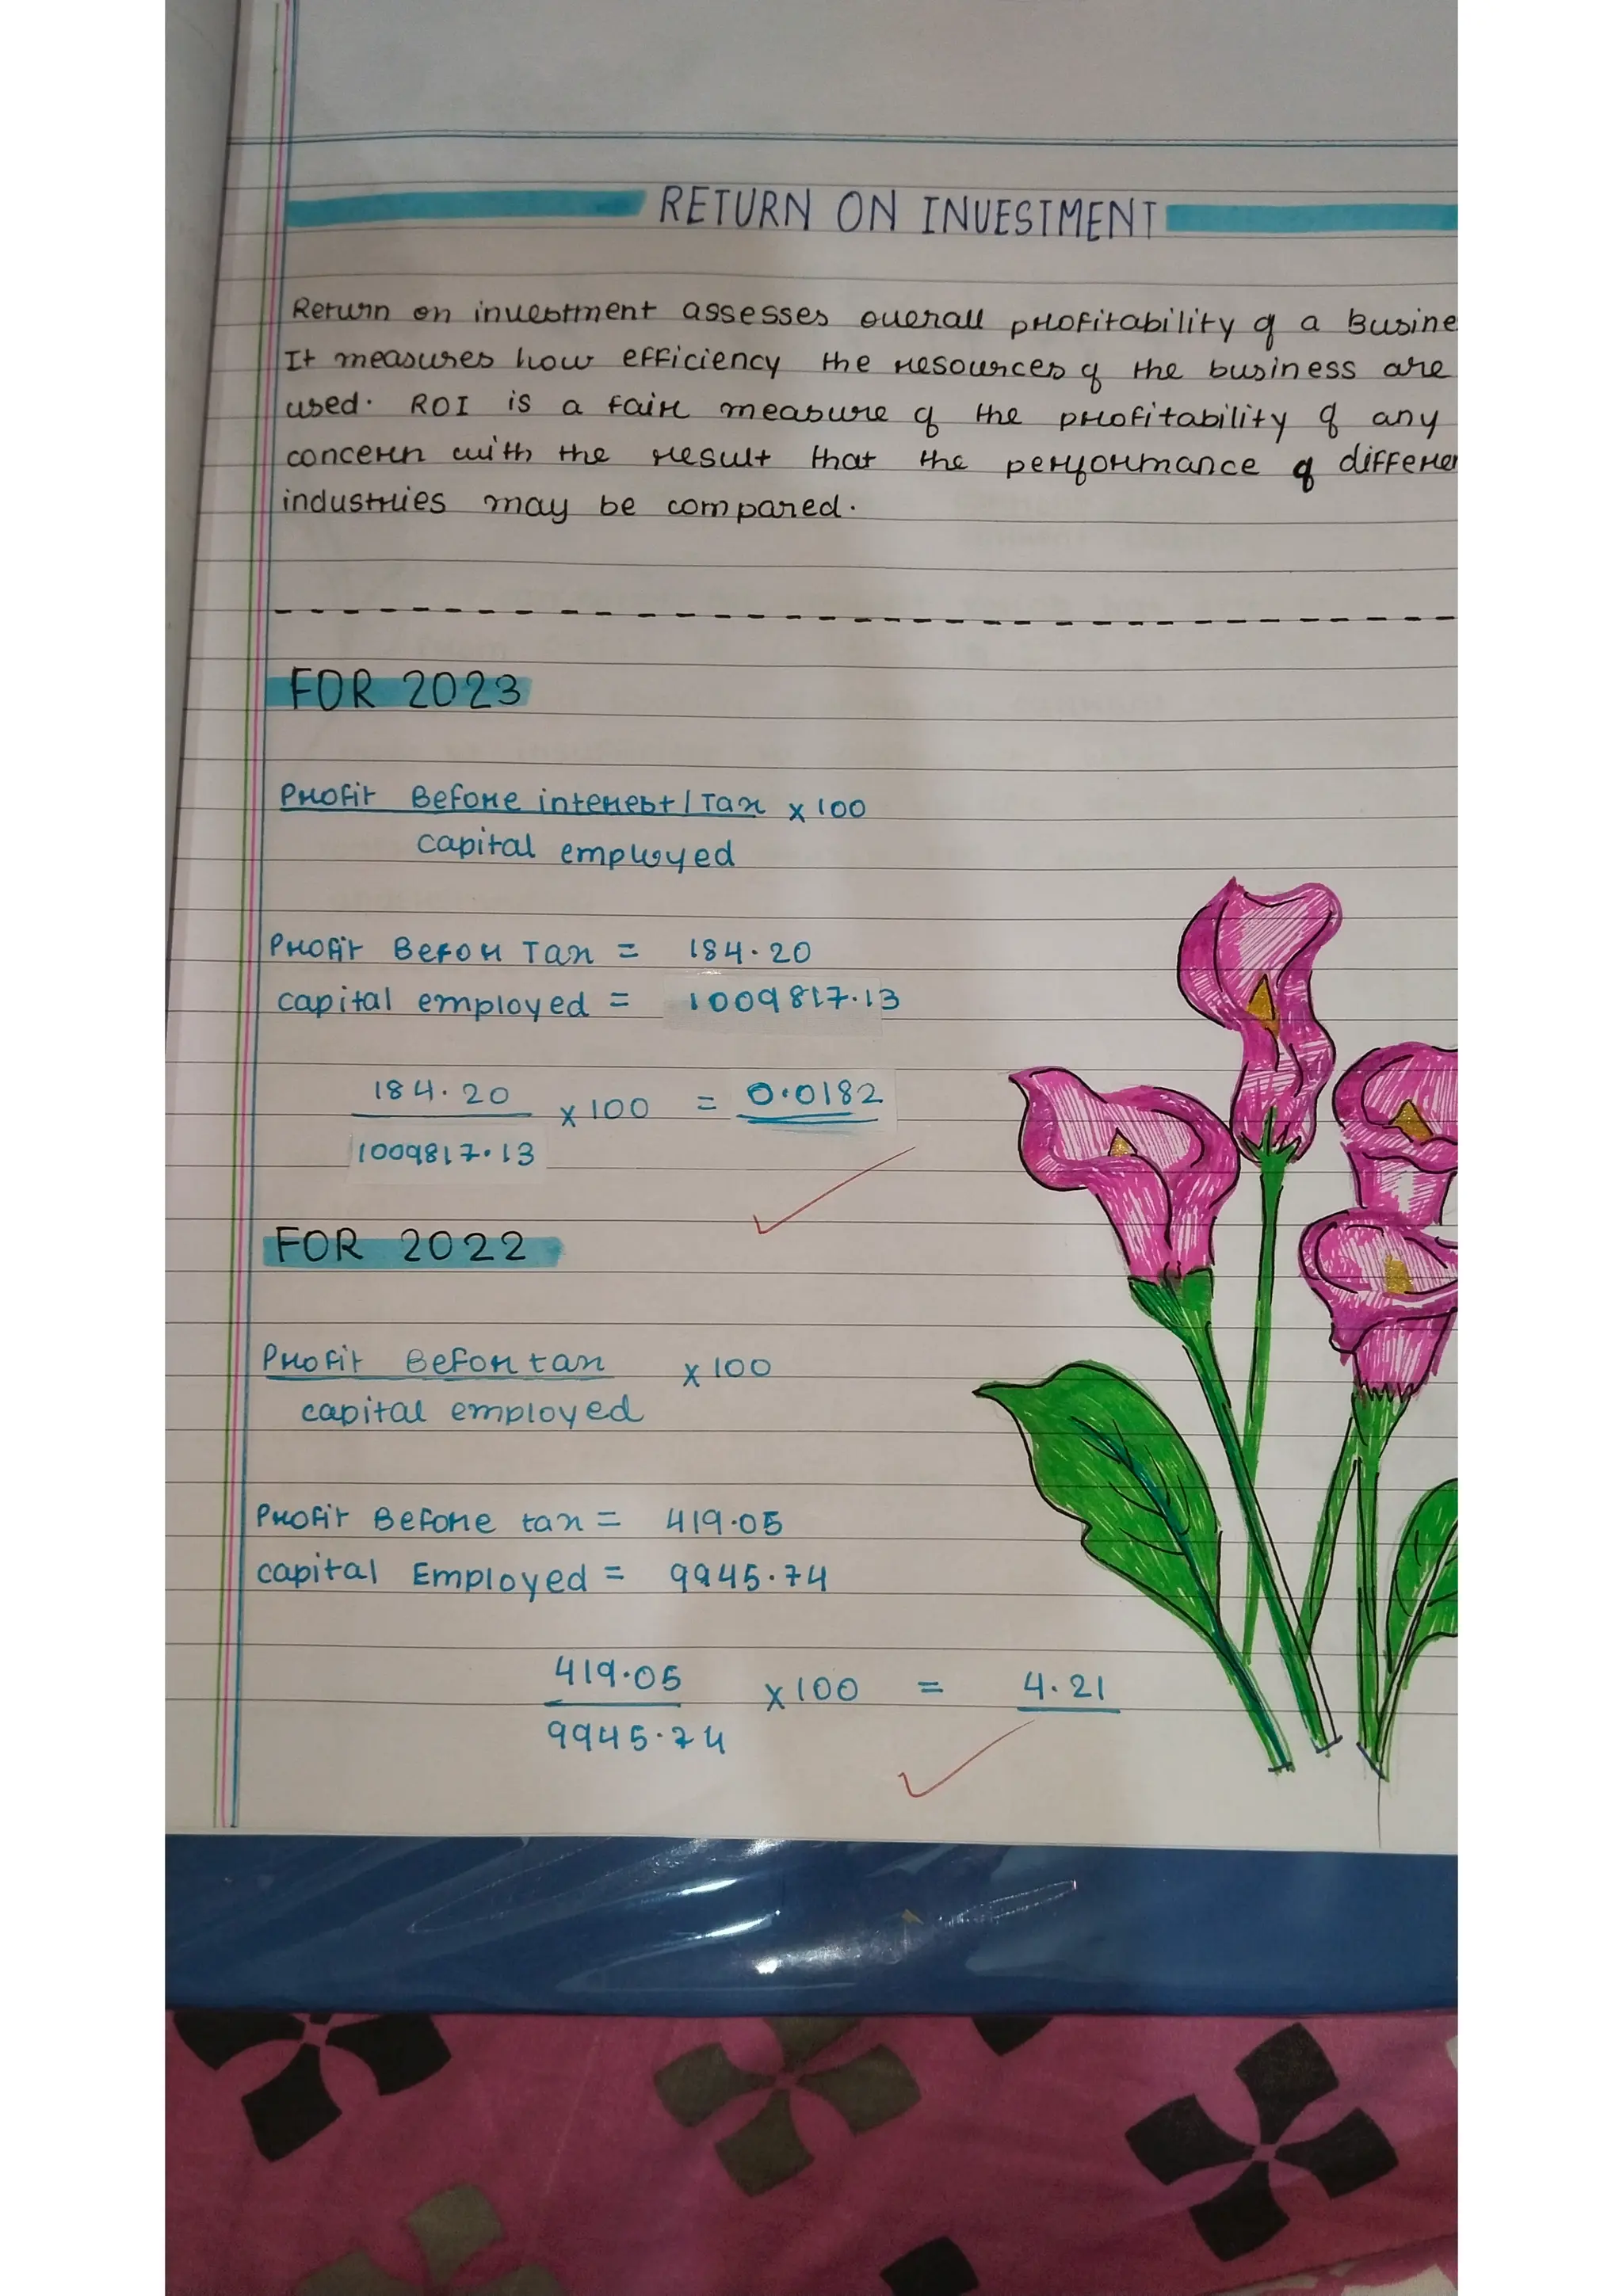 RETURN ON INVESTMENT
Return on investment assesses overall profitability of a Busine
It measures how efficiency the resources of the business are
used. ROI is a fair measure of the profitability of any
concern with the result that the performance of differen
industries may be compared.
FOR 2023
Profit Before interest/Tax x 100
capital employed
Profit Befor Tax = 184.20
capital employed = 1009817.13
184.20
x 100 = 0.0182
1009817.13
FOR 2022
Profit Befor tax x 100
capital employed
Profit Before tax = 419.05
capital Employed = 9945.74
419.05
x 100 = 4.21
9945.74